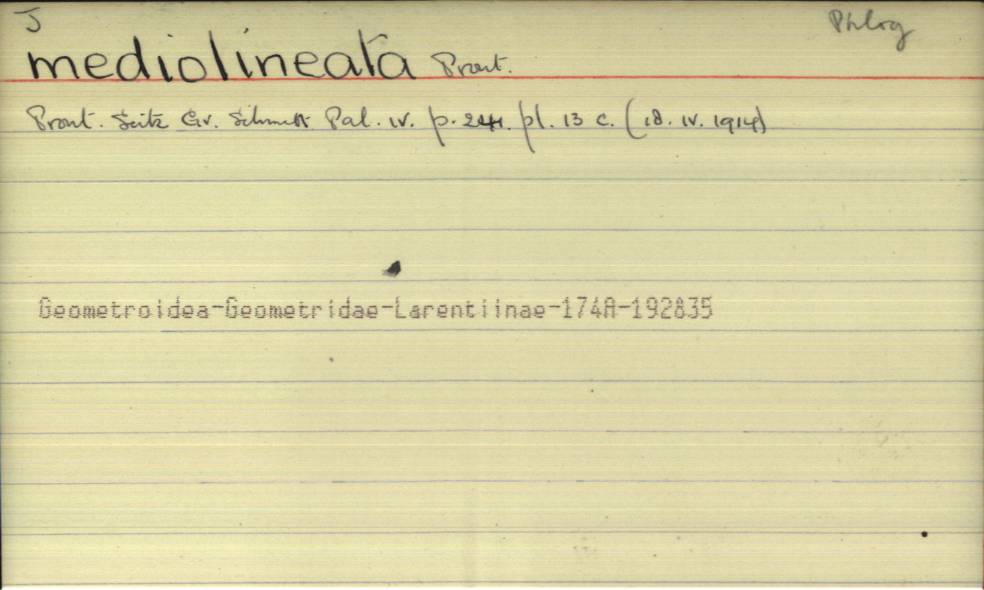 J
Phlog
mediolineata Prout.
Prout. Seitz Gr. Schmett Pal. IV. p. 241. pl. 13 c. (18. IV. 1914)
Geometroidea-Geometridae-Larentiinae-174A-192835